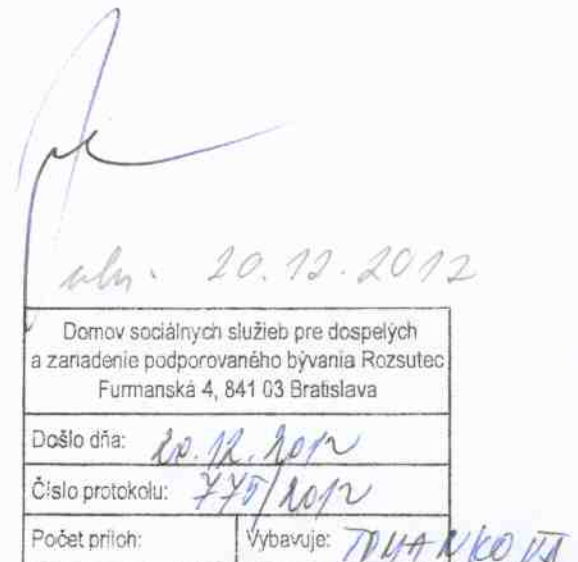 20.12.2012
Domov sociálnych služieb pre dospelých
a zariadenie podporovaného bývania Rozsutec
Furmanská 4, 841 03 Bratislava
Došlo dňa: 20.12.2012
Číslo protokolu: 775/2012
Počet príloh:
Vybavuje: